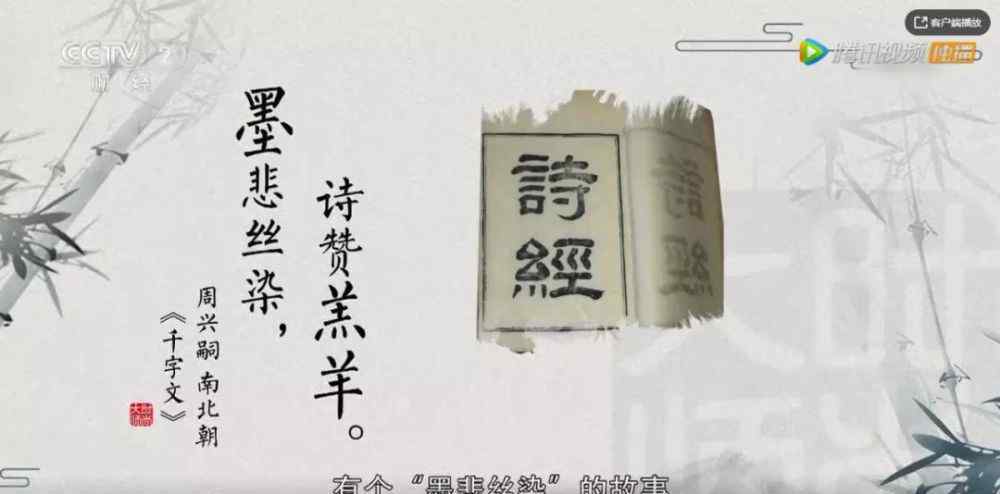 客户端播放
CCTV 2
财经
腾讯视频 独播
墨悲丝染，
诗赞羔羊。
周兴嗣 南北朝
《千字文》
詩經
有个“墨悲丝染”的故事